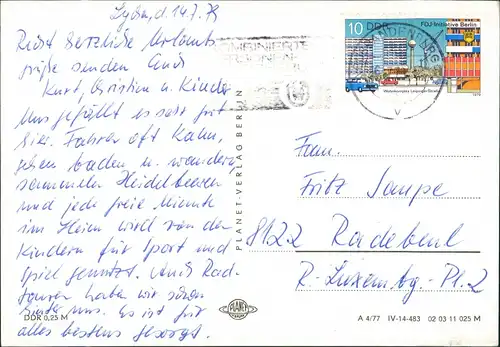 Lychen, d. 14.7.79
Recht herzliche Urlaubs-
grüße senden Euch
Kurt, Christian u. Kinder
Uns gefällt es sehr gut
hier. Fahren oft Kahn,
gehen baden u. wandern,
sammeln Heidelbeeren
und jede freie Minute
im Heim wird von den
Kindern für Sport und
Spiel genutzt. Auch Rad-
touren haben wir schon
hinter uns. Es ist für
alles bestens gesorgt.
DDR 0,25 M
PLANET-VERLAG BERLIN
PLANET
10 DDR
FDJ-Initiative Berlin
Wohnkomplex Leipziger Straße
1979
BRANDENBURG
Fam.
Fritz Sampe
8122 Radebeul
R.-Luxembg.-Pl. 2
A 4/77 IV-14-483 02 03 11 025 M